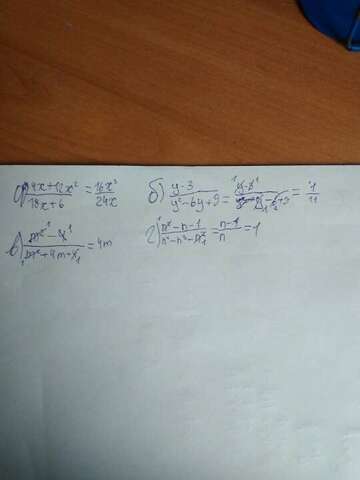 а) 4x+12x²/18x+6 = 16x³/24x б) y-3/y²-6y+9 = y-3/y²-6y+9 = 1/11
в) m²-4/m²+4m+4 = 4m г) n²-n-1/n²-n³-n² = n-1/n = 1